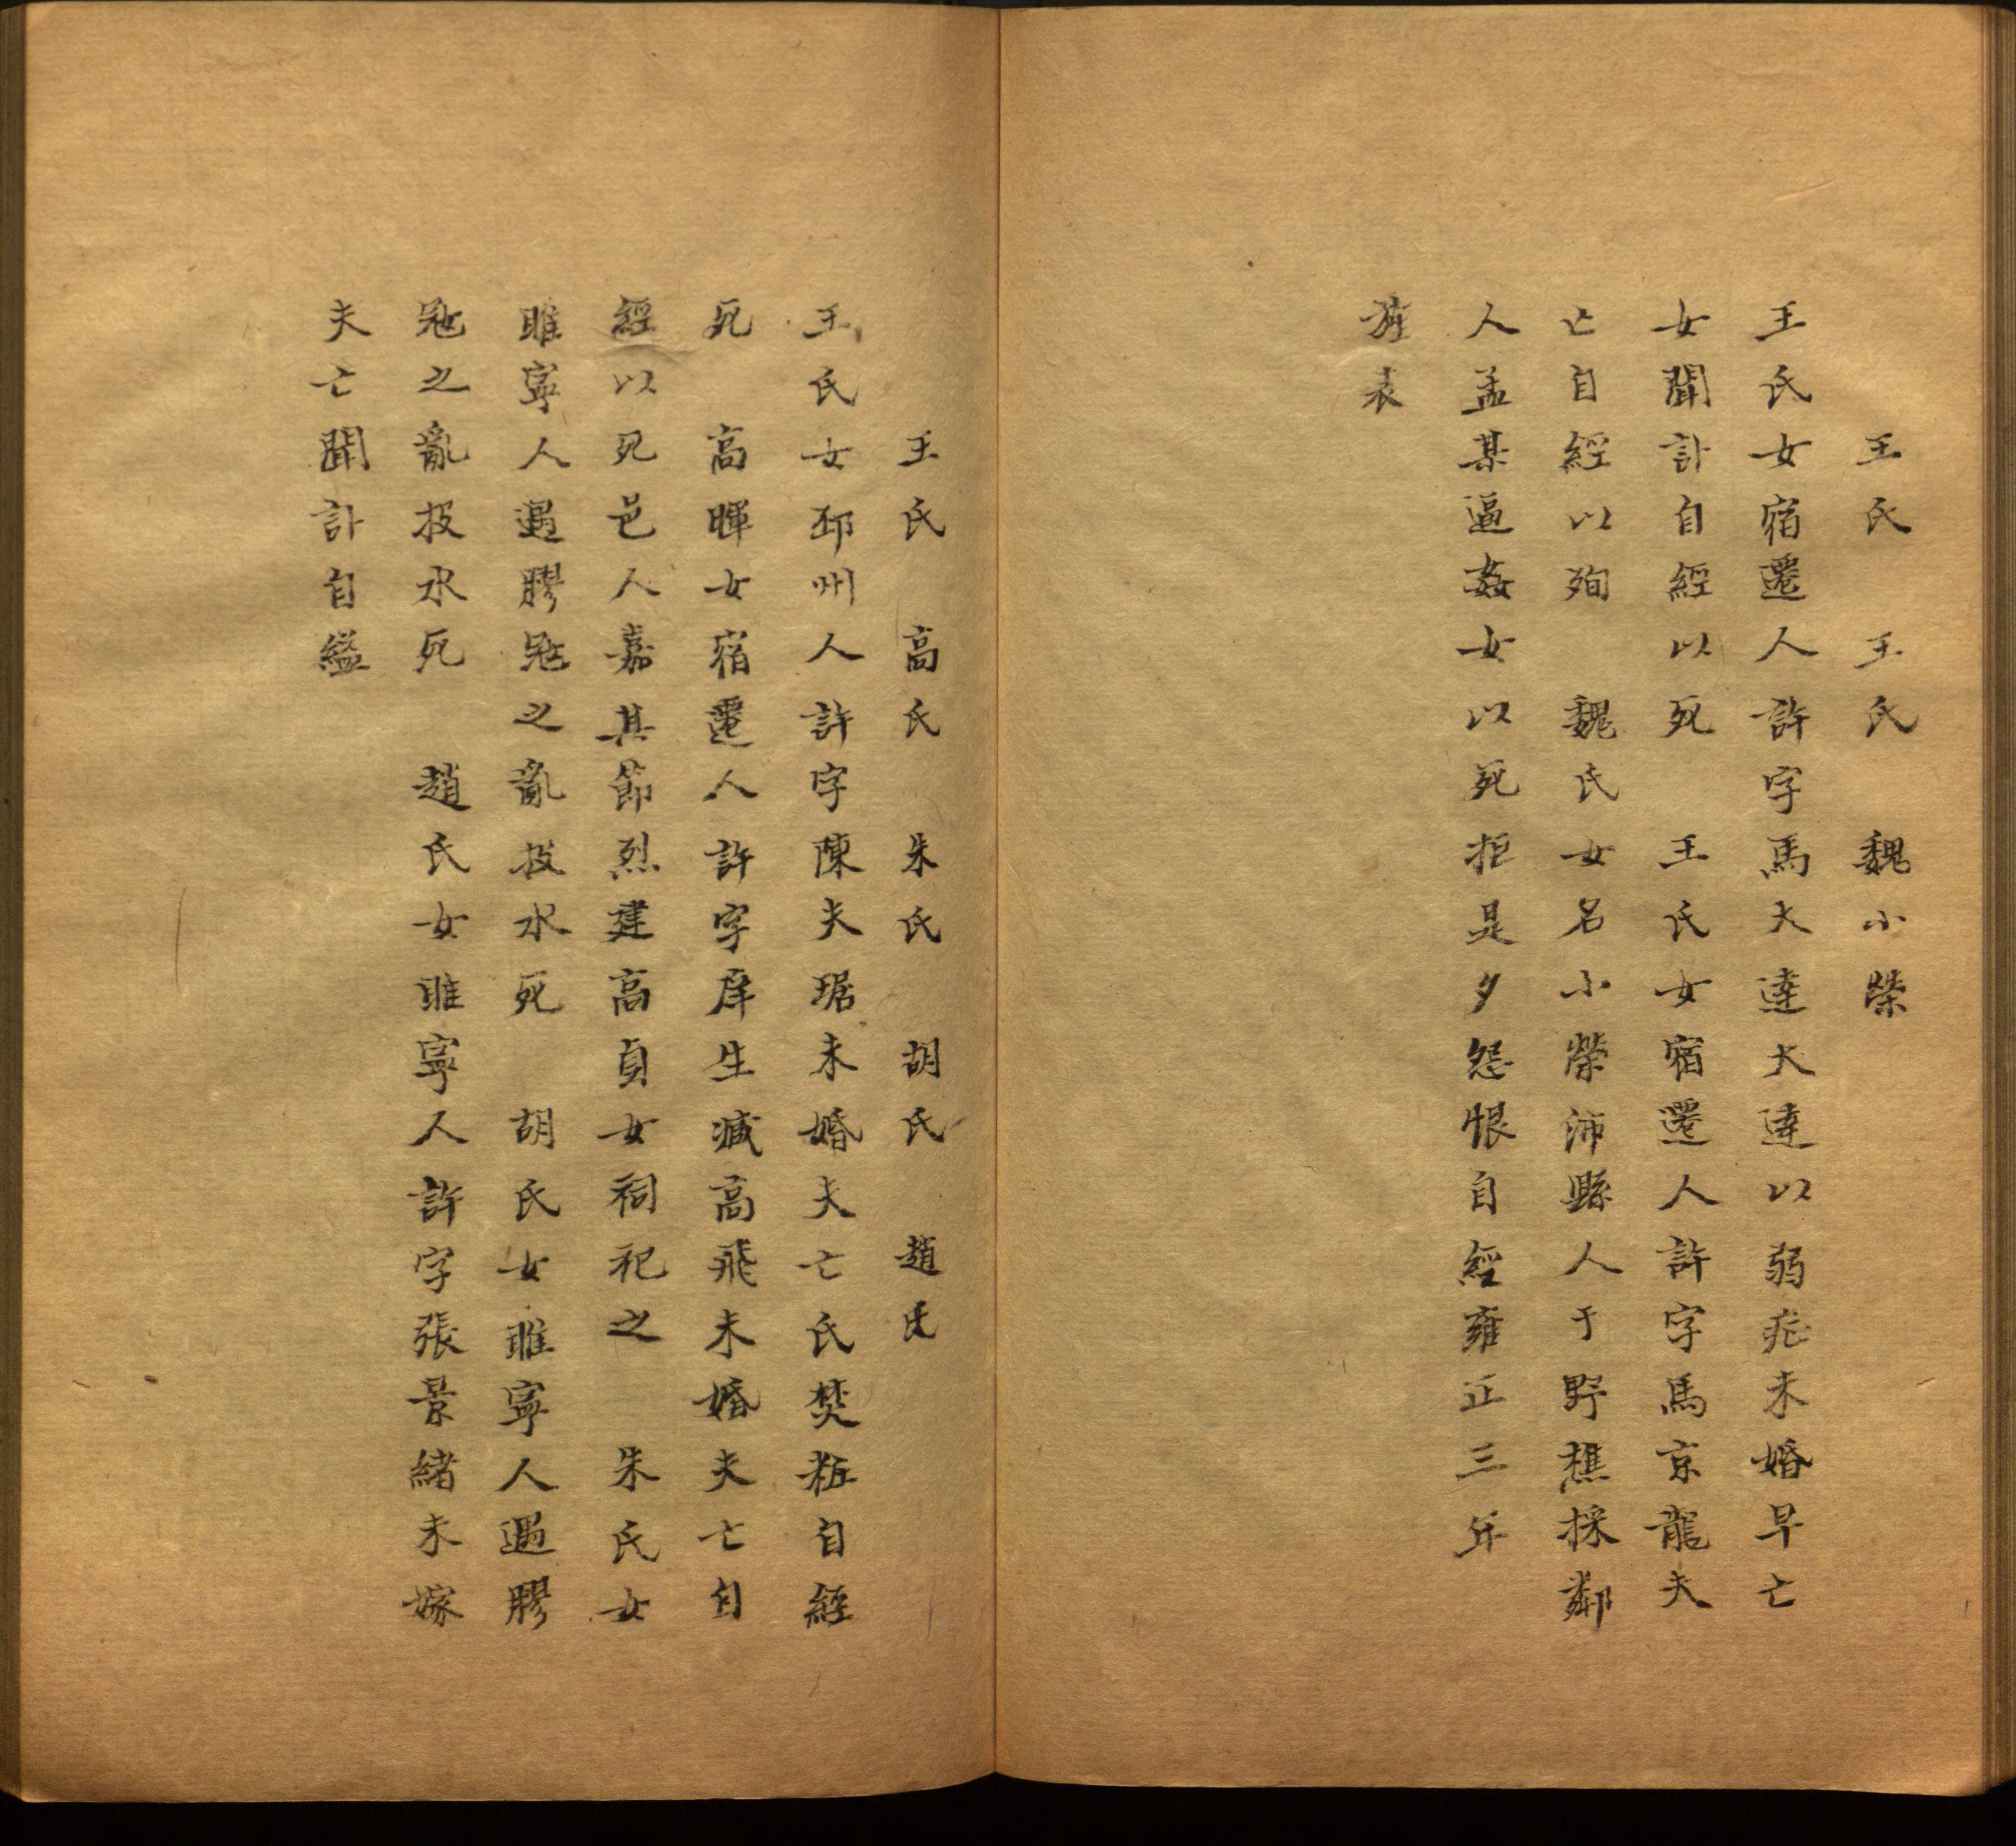 王氏　王氏　魏小榮
王氏女宿遷人許字馬大達大達以弱症未婚早亡
女聞訃自經以死　王氏女宿遷人許字馬京龍夫
亡自經以殉　魏氏女名小榮沛縣人于野樵採鄰
人孟某逼姦女以死拒是夕怨恨自經雍正三年
旌表
王氏　高氏　朱氏　胡氏　趙氏
王氏女邳州人許字陳夫琚未婚夫亡氏焚粧自經
死　高暉女宿遷人許字庠生臧高飛未婚夫亡自
經以死邑人嘉其節烈建高貞女祠祀之　朱氏女
睢寧人遇膠冦之亂投水死　胡氏女睢寧人遇膠
冦之亂投水死　趙氏女睢寧人許字張景緒未嫁
夫亡聞訃自縊